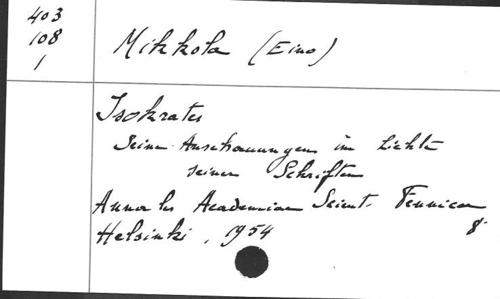 403
108
1
Mikkola (Eino)
Isokrates
Seine Anschauungen im Lichte
seiner Schriften
Annales Academiae Scient. Fennicae
8°
Helsinki, 1954